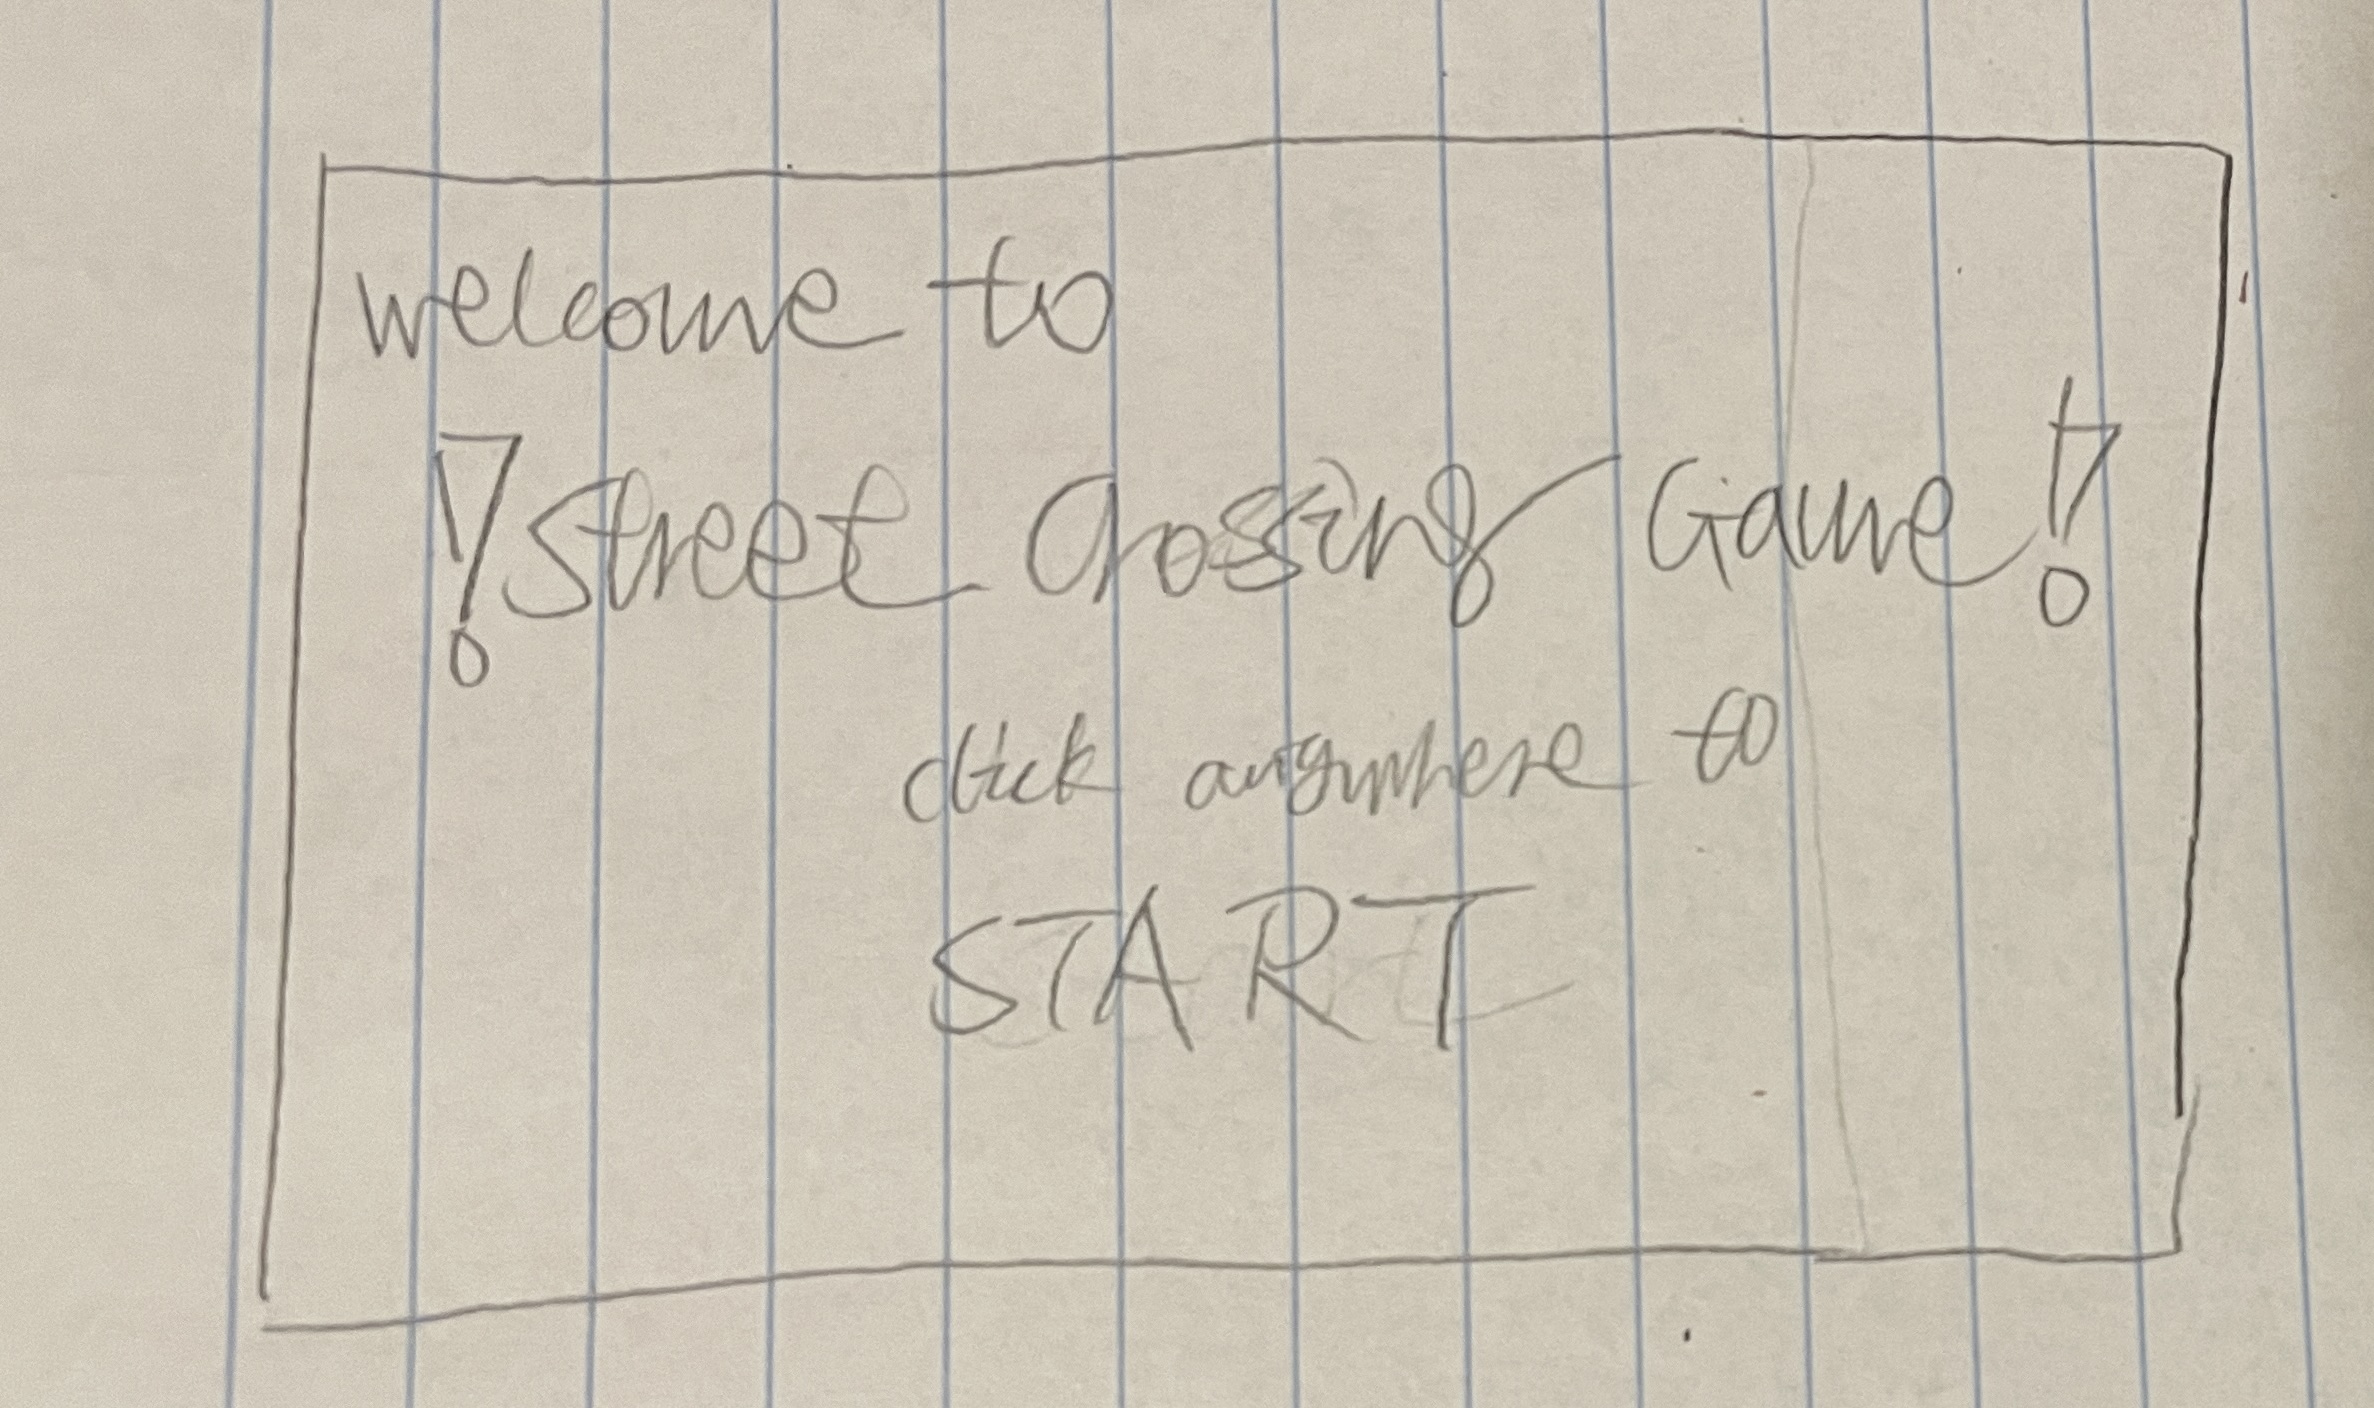 welcome to
! Street Crossing Game !
click anywhere to
START